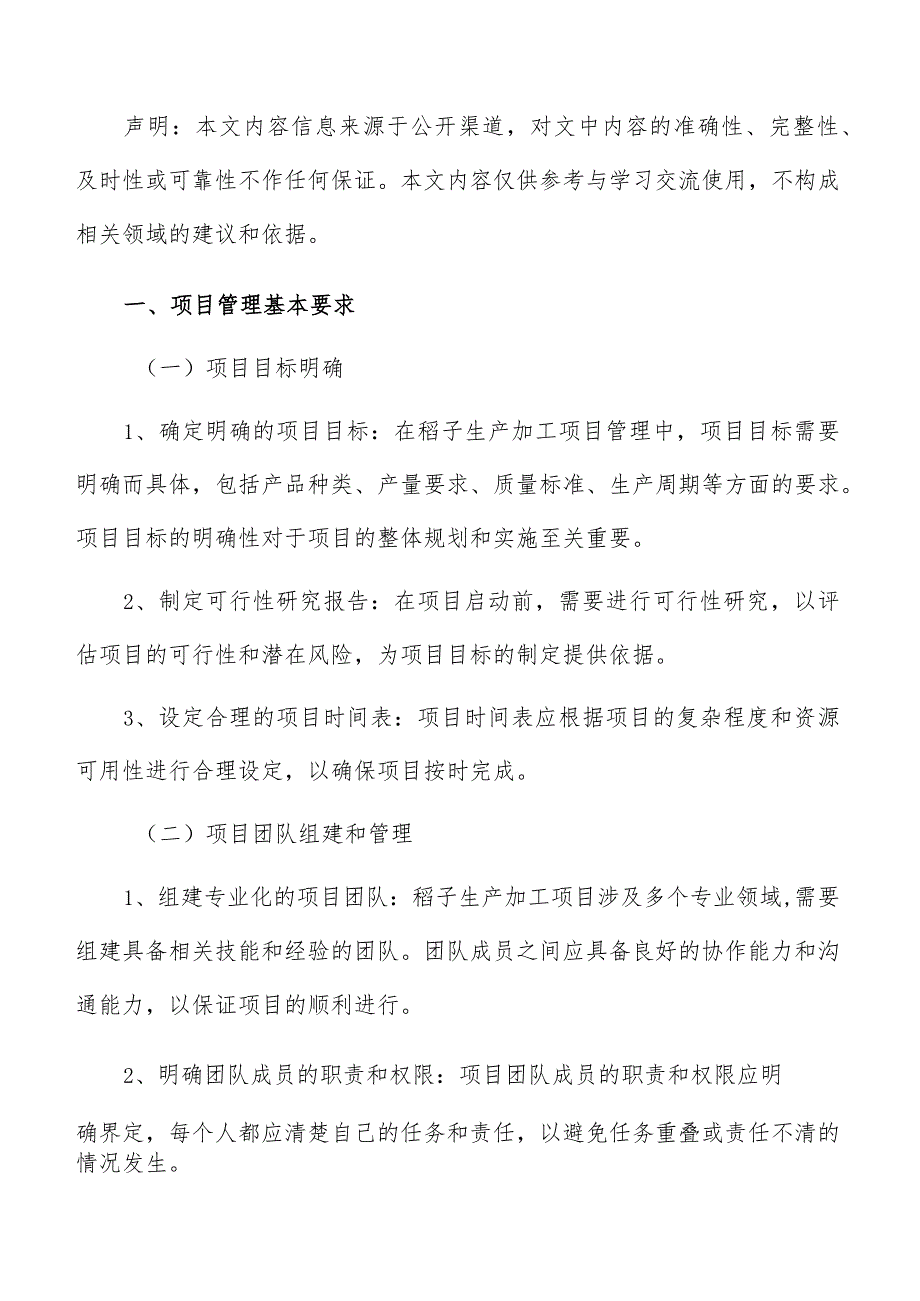 声明：本文内容信息来源于公开渠道，对文中内容的准确性、完整性、
及时性或可靠性不作任何保证。本文内容仅供参考与学习交流使用，不构成
相关领域的建议和依据。
一、项目管理基本要求
（一）项目目标明确
1、确定明确的项目目标：在稻子生产加工项目管理中，项目目标需要
明确而具体，包括产品种类、产量要求、质量标准、生产周期等方面的要求。
项目目标的明确性对于项目的整体规划和实施至关重要。
2、制定可行性研究报告：在项目启动前，需要进行可行性研究，以评
估项目的可行性和潜在风险，为项目目标的制定提供依据。
3、设定合理的项目时间表：项目时间表应根据项目的复杂程度和资源
可用性进行合理设定，以确保项目按时完成。
（二）项目团队组建和管理
1、组建专业化的项目团队：稻子生产加工项目涉及多个专业领域,需要
组建具备相关技能和经验的团队。团队成员之间应具备良好的协作能力和沟
通能力，以保证项目的顺利进行。
2、明确团队成员的职责和权限：项目团队成员的职责和权限应明
确界定，每个人都应清楚自己的任务和责任，以避免任务重叠或责任不清的
情况发生。